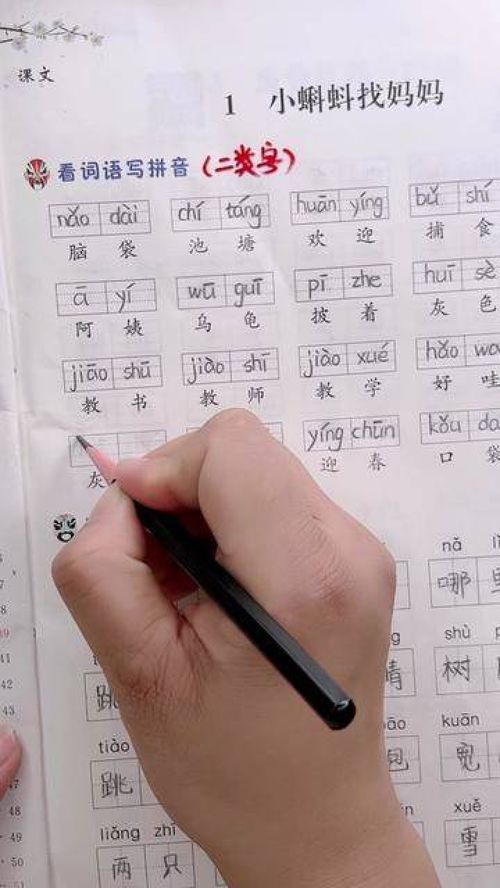 课文
1 小蝌蚪找妈妈
看词语写拼音(二类字)
nǎo dài chí táng huān yíng bǔ shí
脑袋 池塘 欢迎 捕食
ā yí wū guī pī zhe huī sè
阿姨 乌龟 披着 灰色
jiāo shū jiào shī jiào xué hǎo wa
教书 教师 教学 好哇
yíng chūn kǒu da
灰 迎春 口袋
nǎ
哪
shù
跳 晴 树
tiào kuān
跳 包 宽
liǎng zhī xuě
两只 雪